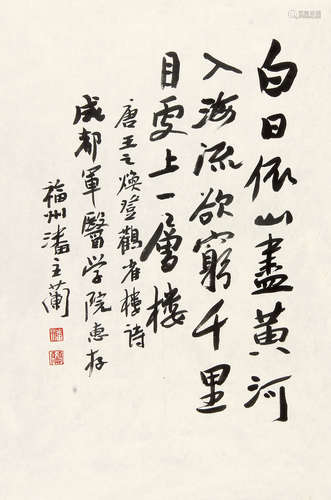 白日依山盡黃河
入海流欲窮千里
目更上一層樓
唐王之煥登觀雀樓詩
成都軍醫学院惠存
福州潘主蘭